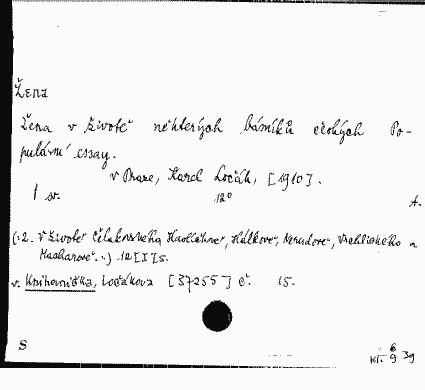 Žena
Žena v životě některých básníků českých Po-
pulární essay.
v Praze, Karel Ločák, [1910].
1 sv. 12° A.
(:2. V životě Čelakovského, Havlíčkově, Hálkově, Nerudově, Vrchlického a
Macharově.:) 12[I]s.
v. Knihovnička, Ločákova [37255] č. 15.
S
6
Kt. 9 39